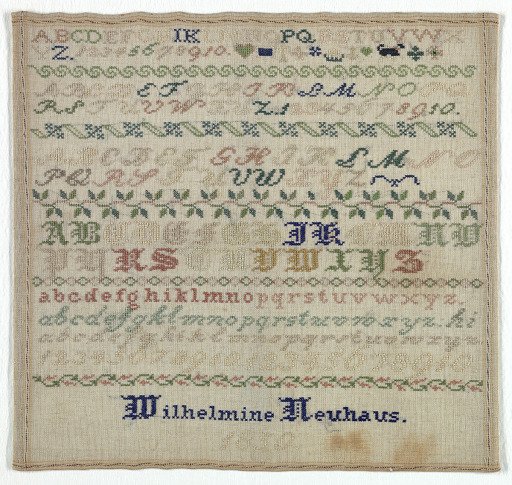 ABCDEFGHIKLMNOPQRSTUVW
Z. 12345678910.
ABCDEFGHIKLMNOPQ
RSTUVW Z.12345678910.
ABCDEFGHIKLMNO
PQRSTUVWXYZ
AB IK NO
PQRS VWXYZ
abcdefghiklmnopqrstuvwxyz.
abcdefgklmnopqrstuvwxyz.hi
abcdefghiklmnopqrstuvwxyz
Wilhelmine Neuhaus.